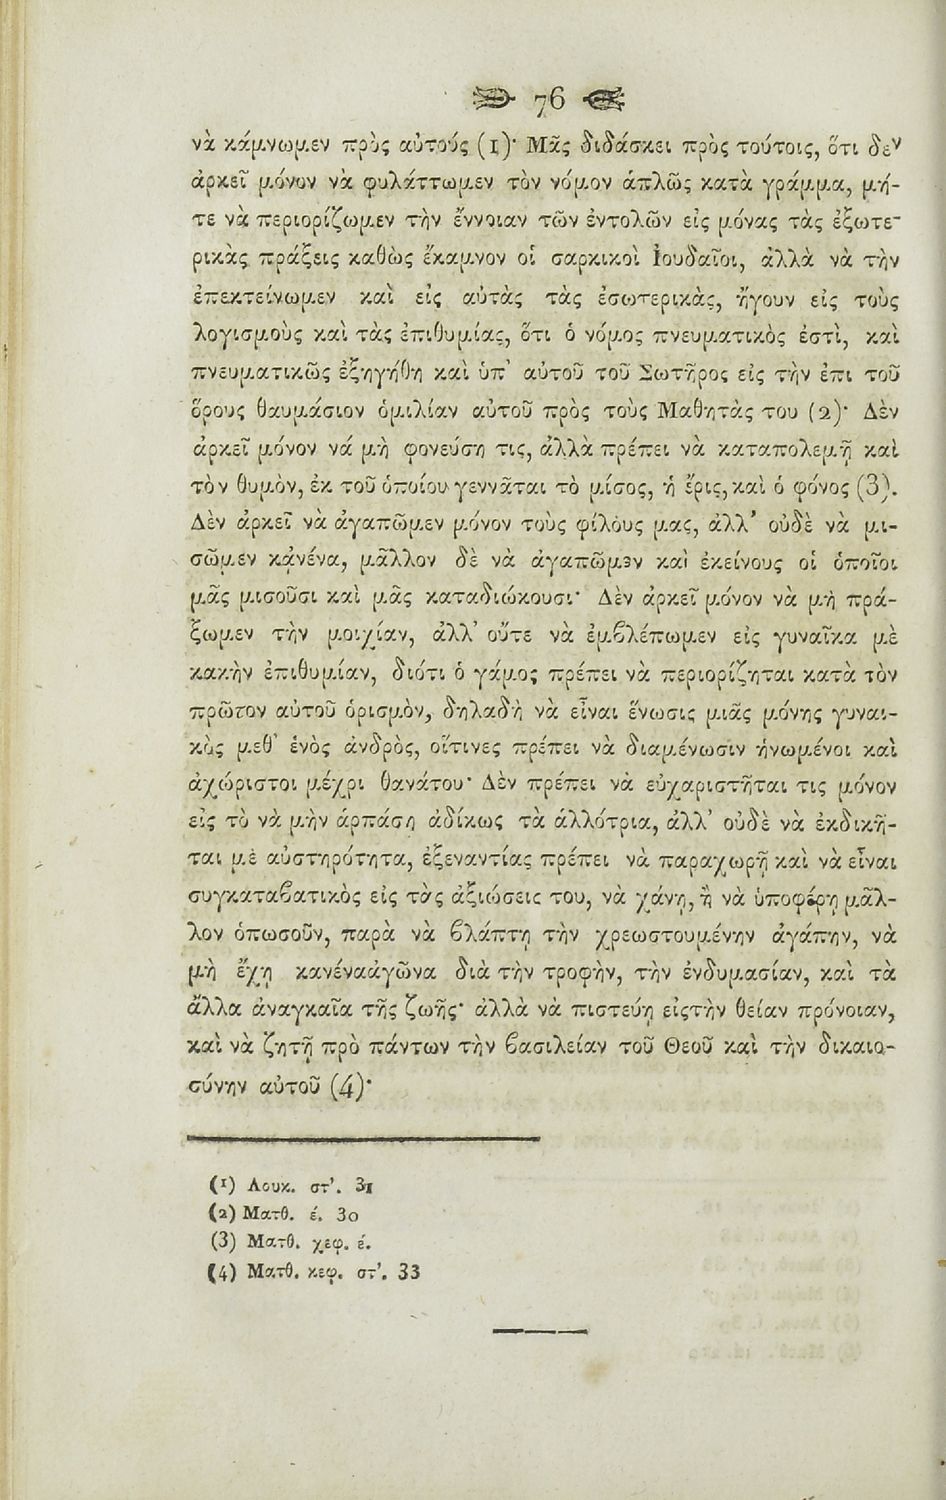 76
νὰ κάμνωμεν πρὸς αὐτούς (1)· Μᾶς διδάσκει πρὸς τούτοις, ὅτι δὲν
ἀρκεῖ μόνον νὰ φυλάττωμεν τὸν νόμον ἁπλῶς κατὰ γράμμα, μή-
τε νὰ περιορίζωμεν τὴν ἔννοιαν τῶν ἐντολῶν εἰς μόνας τὰς ἐξωτε-
ρικὰς πράξεις καθὼς ἔκαμνον οἱ σαρκικοὶ Ἰουδαῖοι, ἀλλὰ νὰ τὴν
ἐπεκτείνωμεν καὶ εἰς αὐτὰς τὰς ἐσωτερικὰς, ἤγουν εἰς τοὺς
λογισμοὺς καὶ τὰς ἐπιθυμίας, ὅτι ὁ νόμος πνευματικὸς ἐστὶ, καὶ
πνευματικῶς ἐξηγήθη καὶ ὑπ' αὐτοῦ τοῦ Σωτῆρος εἰς τὴν ἐπι τοῦ
ὄρους θαυμάσιον ὁμιλίαν αὐτοῦ πρὸς τοὺς Μαθητάς του (2)· Δὲν
ἀρκεῖ μόνον νά μὴ φονεύσῃ τις, ἀλλὰ πρέπει νὰ καταπολεμῇ καὶ
τὸν θυμὸν, ἐκ τοῦ ὁποίου γεννᾶται τὸ μίσος, ἡ ἔρις, καὶ ὁ φόνος (3).
Δὲν ἀρκεῖ νὰ ἀγαπῶμεν μόνον τοὺς φίλους μας, ἀλλ' οὐδὲ νὰ μι-
σῶμεν κᾀνένα, μᾶλλον δὲ νὰ ἀγαπῶμεν καὶ ἐκείνους οἱ ὁποῖοι
μᾶς μισοῦσι καὶ μᾶς καταδιώκουσι· Δὲν ἀρκεῖ μόνον νὰ μὴ πρά-
ξωμεν τὴν μοιχίαν, ἀλλ' οὔτε νὰ ἐμβλέπωμεν εἰς γυναῖκα μὲ
κακὴν ἐπιθυμίαν, διότι ὁ γάμος πρέπει νὰ περιορίζηται κατὰ τὸν
πρῶτον αὐτοῦ ὁρισμὸν, δηλαδὴ νὰ εἶναι ἕνωσις μιᾶς μόνης γυναι-
κὸς μεθ' ἑνὸς ἀνδρὸς, οἵτινες πρέπει νὰ διαμένωσιν ἡνωμένοι καὶ
ἀχώριστοι μέχρι θανάτου· Δὲν πρέπει νὰ εὐχαριστῆται τις μόνον
εἰς τὸ νὰ μὴν ἁρπάσῃ ἀδίκως τὰ ἀλλότρια, ἀλλ' οὐδὲ νὰ ἐκδικῆ-
ται μὲ αὐστηρότητα, ἐξεναντίας πρέπει νὰ παραχωρῇ καὶ νὰ εἶναι
συγκαταβατικὸς εἰς τὰς ἀξιώσεις του, νὰ χάνῃ, ἢ νὰ ὑποφέρῃ μᾶλ-
λον ὁπωσοῦν, παρὰ νὰ βλάπτῃ τὴν χρεωστουμένην ἀγάπην, νὰ
μὴ ἔχῃ κανέναἀγῶνα διὰ τὴν τροφὴν, τὴν ἐνδυμασίαν, καὶ τὰ
ἄλλα ἀναγκαῖα τῆς ζωῆς· ἀλλὰ νὰ πιστεύῃ εἰςτὴν θείαν πρόνοιαν,
καὶ νὰ ζητῇ πρὸ πάντων τὴν βασιλείαν τοῦ Θεοῦ καὶ τὴν δικαιο-
σύνην αὐτοῦ (4)·
(1) Λουκ. στ'. 31
(2) Ματθ. έ. 30
(3) Ματθ. χεφ. έ.
(4) Ματθ. κεφ. στ'. 33